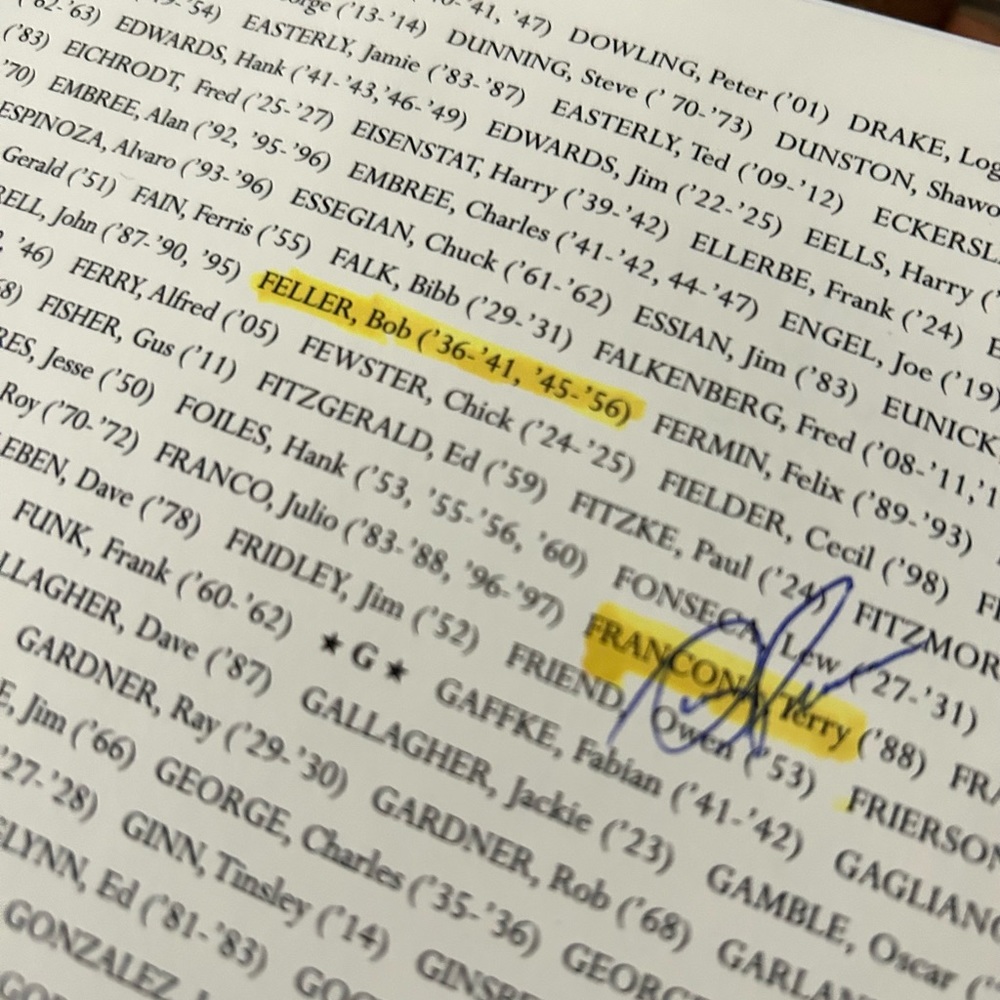 '41, '47) DOWLING, Peter ('01) DRAKE, Log
orge ('13-'14) DUNNING, Steve (' 70-'73) DUNSTON, Shawo
'54) EASTERLY, Jamie ('83-'87) EASTERLY, Ted ('09-'12) ECKERSL
'62-'63) EDWARDS, Hank ('41-'43,'46-'49) EDWARDS, Jim ('22-'25) EELLS, Harry ('
('83) EICHRODT, Fred ('25-'27) EISENSTAT, Harry ('39-'42) ELLERBE, Frank ('24) E
'70) EMBREE, Alan ('92, '95-'96) EMBREE, Charles ('41-'42, 44-'47) ENGEL, Joe ('19)
ESPINOZA, Alvaro ('93-'96) ESSEGIAN, Chuck ('61-'62) ESSIAN, Jim ('83) EUNICK,
Gerald ('51) FAIN, Ferris ('55) FALK, Bibb ('29-'31) FALKENBERG, Fred ('08-'11,'1
RELL, John ('87-'90, '95) FELLER, Bob ('36-'41, '45-'56) FERMIN, Felix ('89-'93)
'46) FERRY, Alfred ('05) FEWSTER, Chick ('24-'25) FIELDER, Cecil ('98) FI
68) FISHER, Gus ('11) FITZGERALD, Ed ('59) FITZKE, Paul ('24) FITZMOR
RES, Jesse ('50) FOILES, Hank ('53, '55-'56, '60) FONSECA, Lew ('27-'31)
Roy ('70-'72) FRANCO, Julio ('83-'88, '96-'97) FRANCONA, Terry ('88) FRA
LEBEN, Dave ('78) FRIDLEY, Jim ('52) FRIEND, Owen ('53) FRIERSON
FUNK, Frank ('60-'62) ★ G ★ GAFFKE, Fabian ('41-'42) GAGLIANO
LLAGHER, Dave ('87) GALLAGHER, Jackie ('23) GAMBLE, Oscar ('
GARDNER, Ray ('29-'30) GARDNER, Rob ('68) GARLAN
E, Jim ('66) GEORGE, Charles ('35-'36) GEORG
'27-'28) GINN, Tinsley ('14) GINSBE
LYNN, Ed ('81-'83) GO
GONZALEZ,